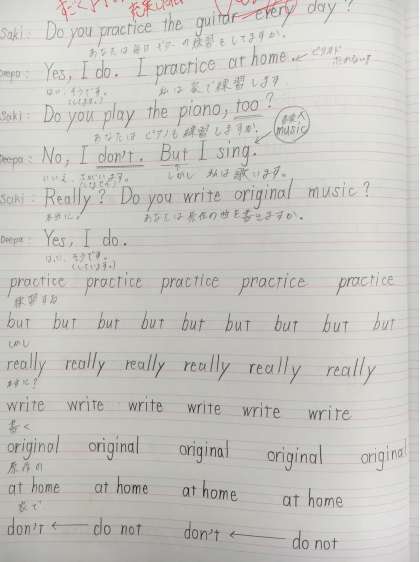 Saki: Do you practice the guitar every day?
あなたは毎日ギターの練習をしてますか。
Deepa: Yes, I do. I practice at home. ← ピリオド
はい、そうです。 私は家で練習します。
(しします。)
Saki: Do you play the piano, too?
あなたはピアノも練習しますか。 music
Deepa: No, I don't. But I sing.
いいえ、ちがいます。 しかし 私は歌います。
Saki: Really? Do you write original music?
本当に? あなたは
Deepa: Yes, I do.
はい、そうです。
(しています。)
practice practice practice practice practice
練習する
but but but but but but but but but
しかし
really really really really really really
本当に?
write write write write write write
書く
original original original original original
at home at home at home at home
家で
don't ← do not don't ← do not